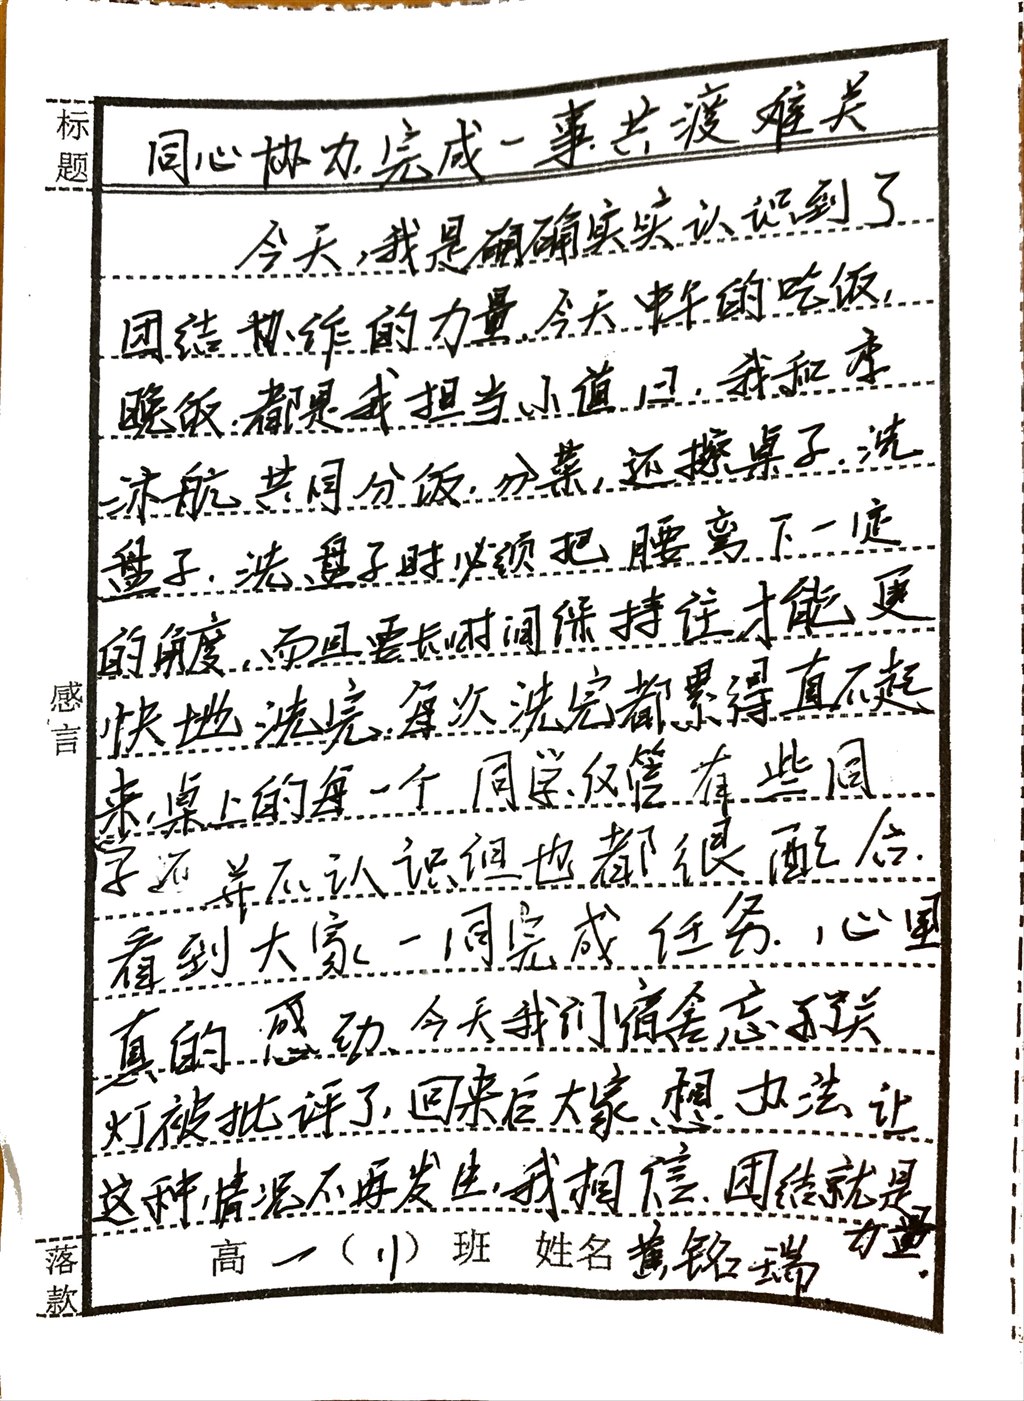 标题
同心协力.完成一事.共渡难关
今天,我是确确实实认识到了
团结协作的力量.今天中午的吃饭,
晚饭.都是我担当小值日.我和李
沐航共同分饭.分菜,还擦桌子.洗
盘子.洗盘子时必须把腰弯下一定
的角度,而且要长时间保持住,才能更
快地洗完.每次洗完都累得直不起
来,桌上的每一个同学,仅管有些同
学还并不认识但也都很配合.
看到大家一同完成任务.心里
真的感动.今天我们宿舍忘了关
灯被批评了.回来后大家想办法让
这种情况不再发生,我相信.团结就是
力量.
感言
落款
高一(11)班 姓名 铭瑞